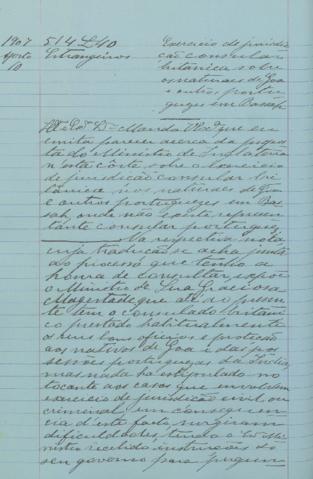 1907 514 L40 Exercicio de jurisdic-
Agosto Estrangeiros ção consular
10 britanica sobre
os naturaes de Goa
e outros portu-
guezes em Bassah
Manda V. Exª que eu
emita parecer acerca da propos
ta do Ministro de Inglaterra
n'esta côrte, sobre o exercicio
de jurisdicção consular bri
tânica nos naturaes de Goa
e outros portuguezes em Bas
sah, onde não existe represen
tante consular portuguez.
Na respectiva nota
cuja traducção se acha junta
ao processo que tenho a
honra de consultar, expõe
o Ministro de Sua Graciosa
Magestade que até ao presen
te tem o consulado britani
co prestado habitualmente
os seus bons officios e protecção
aos nativos de Goa e das pos
sessões portuguezas da India,
mas nada ha estipulado no
tocante aos casos que envolvem
exercicio de jurisdicção civil ou
criminal; em consequen
cia d'este facto, surgiram
difficuldades, tendo o Mi
nistro recebido instrucções do
seu governo para pergun